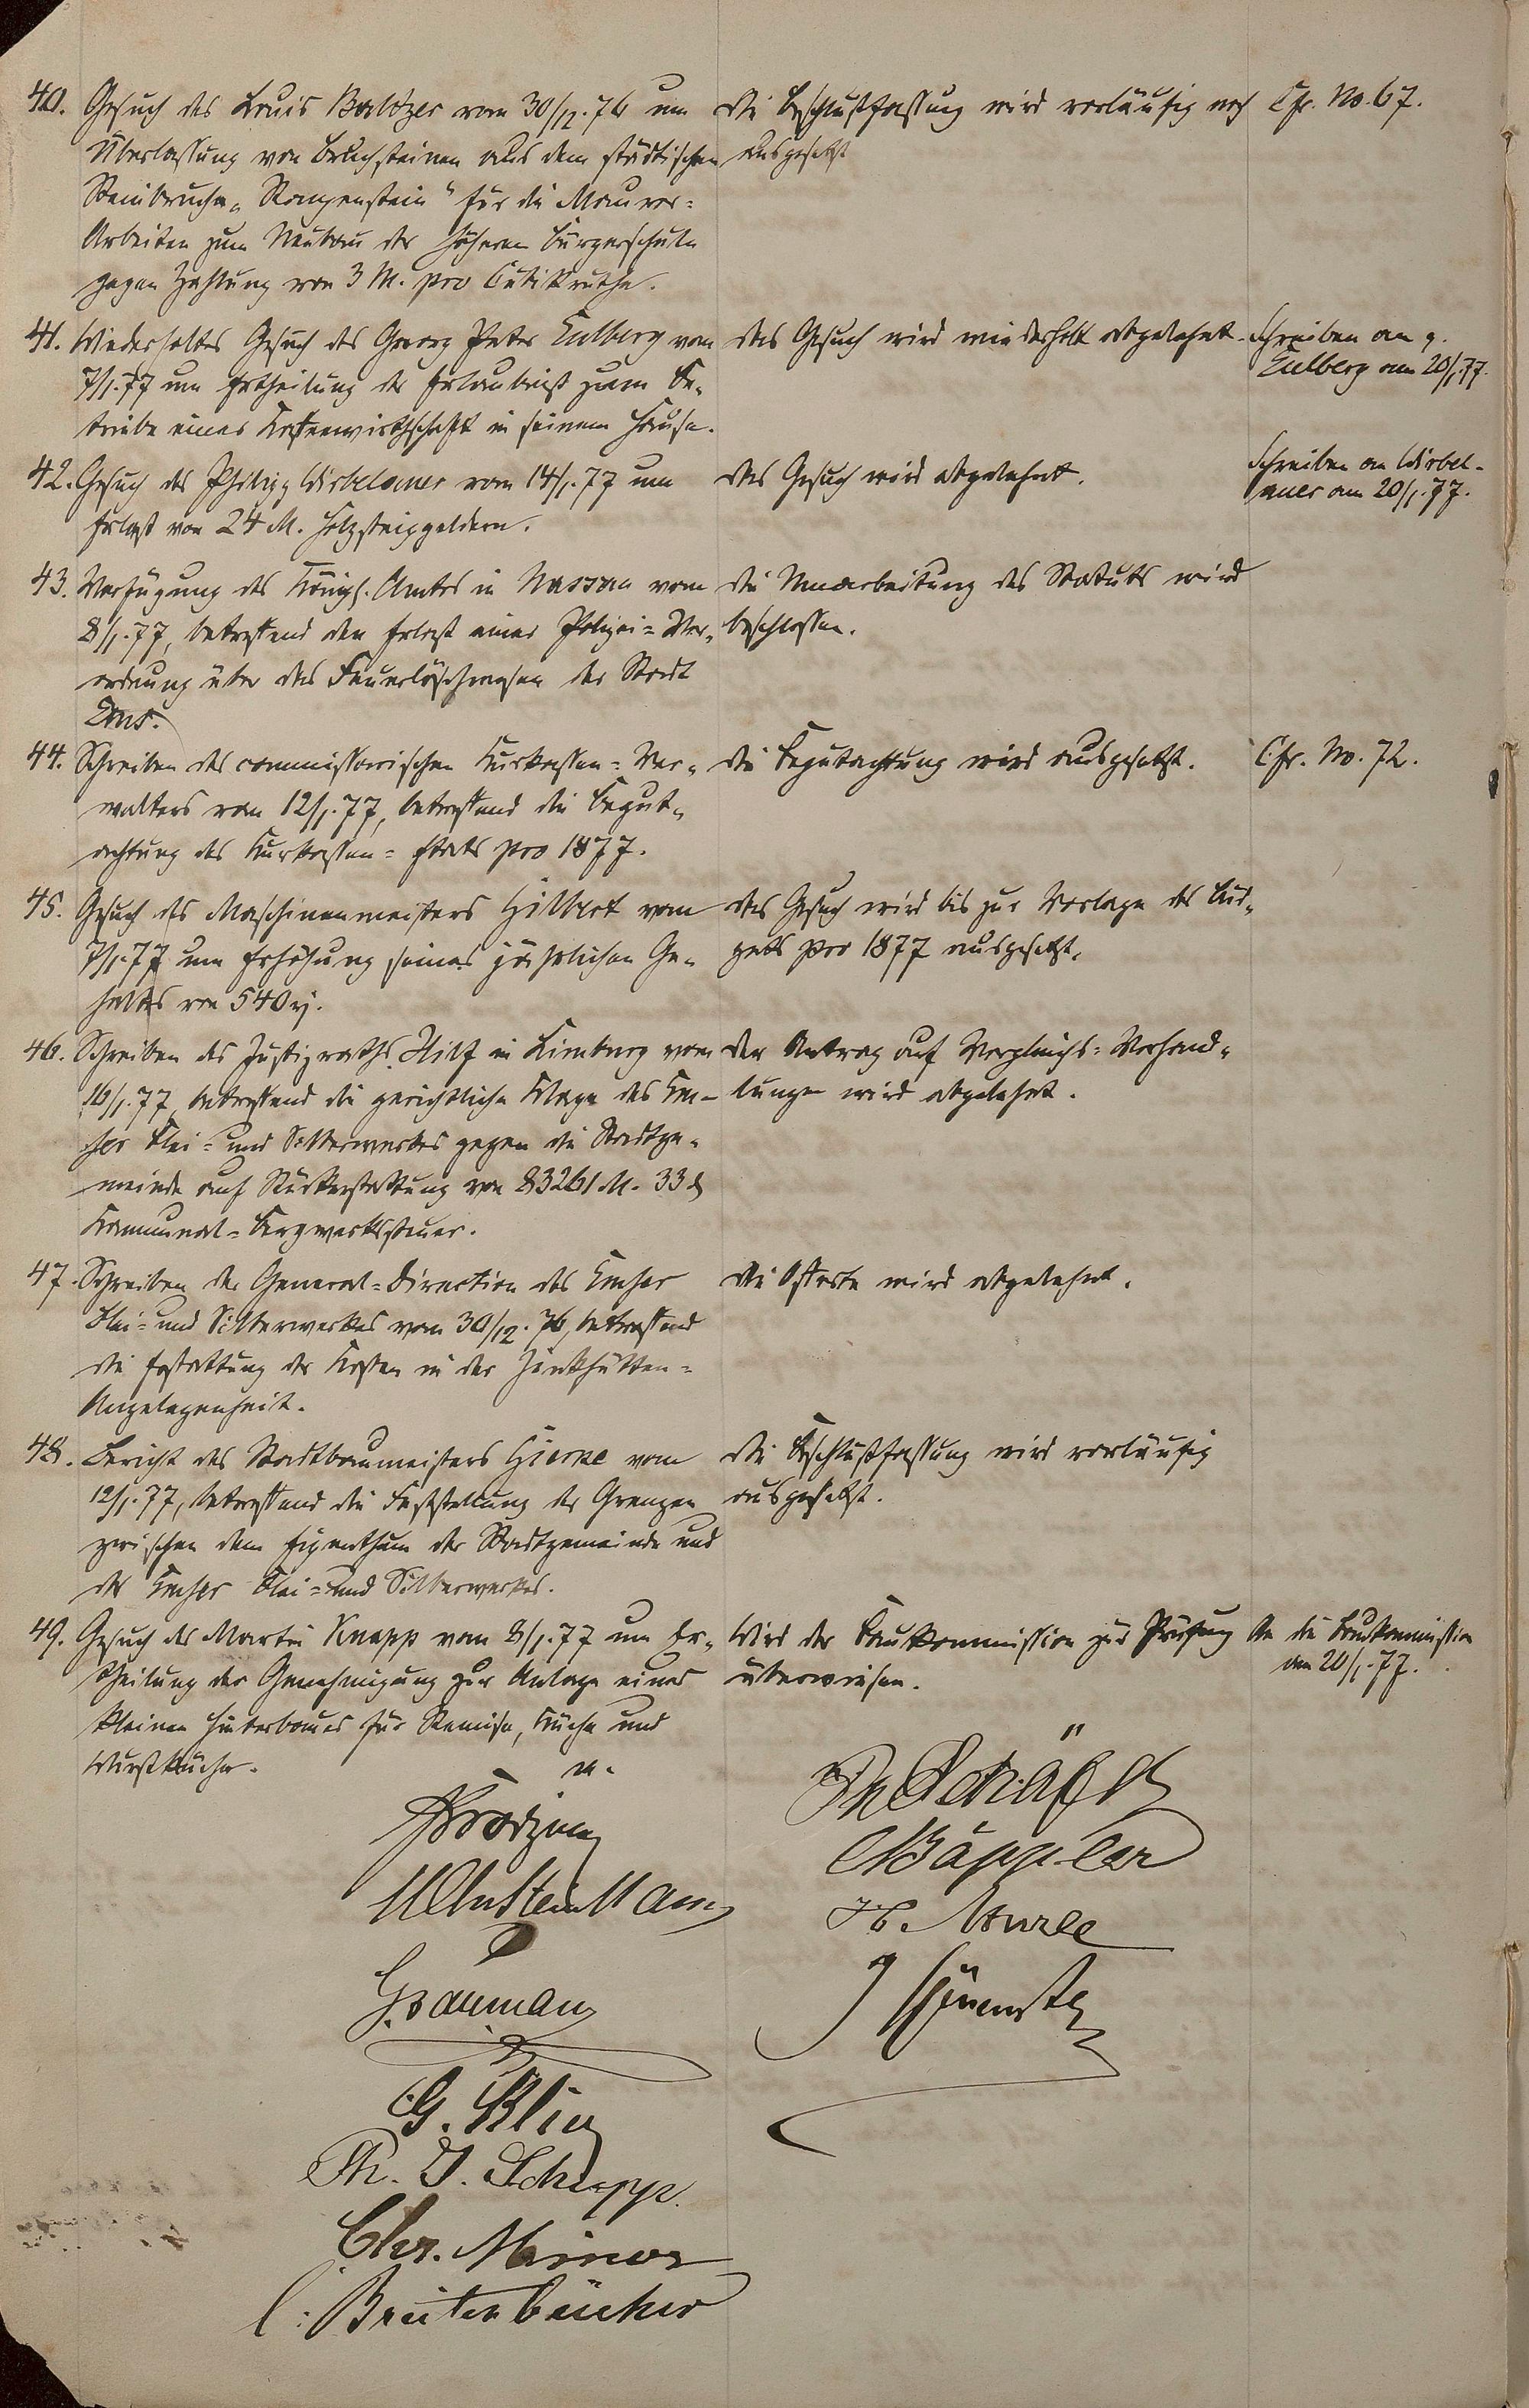 40. Gesuch des Louis Balzer vom 30/12.76 um
Überlassung von Bruchsteinen aus dem städtischen
Steinbruche „Stangenstein" für die Maurer=
Arbeiten zum Neubau der höheren Bürgerschule
gegen Zahlung von 3 M. pro Cubikruthe.
Die Beschlußfassung wird vorläufig noch
ausgesetzt
Cfr. No. 67.
41. Wiederholtes Gesuch des Georg Peter Eulberg vom
7/1.77 um Ertheilung der Erlaubniß zum Be-
triebe einer Kaffeewirthschaft in seinem Hause.
Das Gesuch wird wiederholt abgelehnt.
Schreiben an
Eulberg am 20/1.77.
42. Gesuch des Philipp Wirbelauer vom 14/1.77 um
Erlaß von 24 M. Holzsteiggeldern.
Das Gesuch wird abgelehnt.
Schreiben an Wirbel-
auer am 20/1.77.
43. Verfügung des Königl. Amtes in Nassau vom
8/1.77, betreffend den Erlaß einer Polizei=Ver-
ordnung über das Feuerlöschwesen der Stadt
Ems.
Die Umarbeitung des Statuts wird
beschlossen.
44. Schreiben des commissarischen Kurkassen=Ver-
walters vom 12/1.77, betreffend die Begut-
achtung des Kurkassen=Etats pro 1877.
Die Begutachtung wird ausgesetzt.
Cfr. No. 72.
45. Gesuch des Maschinenmeisters Hilbert vom
7/1.77 um Erhöhung seines jährlichen Ge-
haltes von 540
Das Gesuch wird bis zur Vorlage des Bud-
gets pro 1877 ausgesetzt.
46. Schreiben des Justizraths Hilf in Limburg vom
16/1.77, betreffend die gerichtliche Klage des Em-
ser Blei= und Silberwerkes gegen die Stadtge-
meinde auf Rückerstattung von 83261 M. 33 ₰
Kommunal=Bergwerkssteuer.
Der Antrag auf Vergleichs=Verhand-
lungen wird abgelehnt.
47. Schreiben der General=Direction des Emser
Blei= und Silberwerkes vom 30/12.76, betreffend
die Erstattung der Kosten in der Zinkhütten=
Angelegenheit.
Die Offerte wird abgelehnt.
48. Bericht des Stadtbaumeisters Gierke vom
12/1.77, betreffend die Feststellung der Grenzen
zwischen dem Eigenthum der Stadtgemeinde und
des Emser Blei= und Silberwerkes.
Die Beschlußfassung wird vorläufig
ausgesetzt.
49. Gesuch des Martin Knapp vom 8/1.77 um Er-
theilung der Genehmigung zur Anlage eines
kleinen Hinterbaues für Remise, Küche und
Wurstküche.
Wird der Baukommission zur Prüfung
überwiesen.
An die Baukommission
am 20/1.77.
Ph Schäfer
Bäppler
H. Maree
G. Bauman
G. Klin
Ph. J. Schupp.
Chr. Minor
C. Breitenbücher